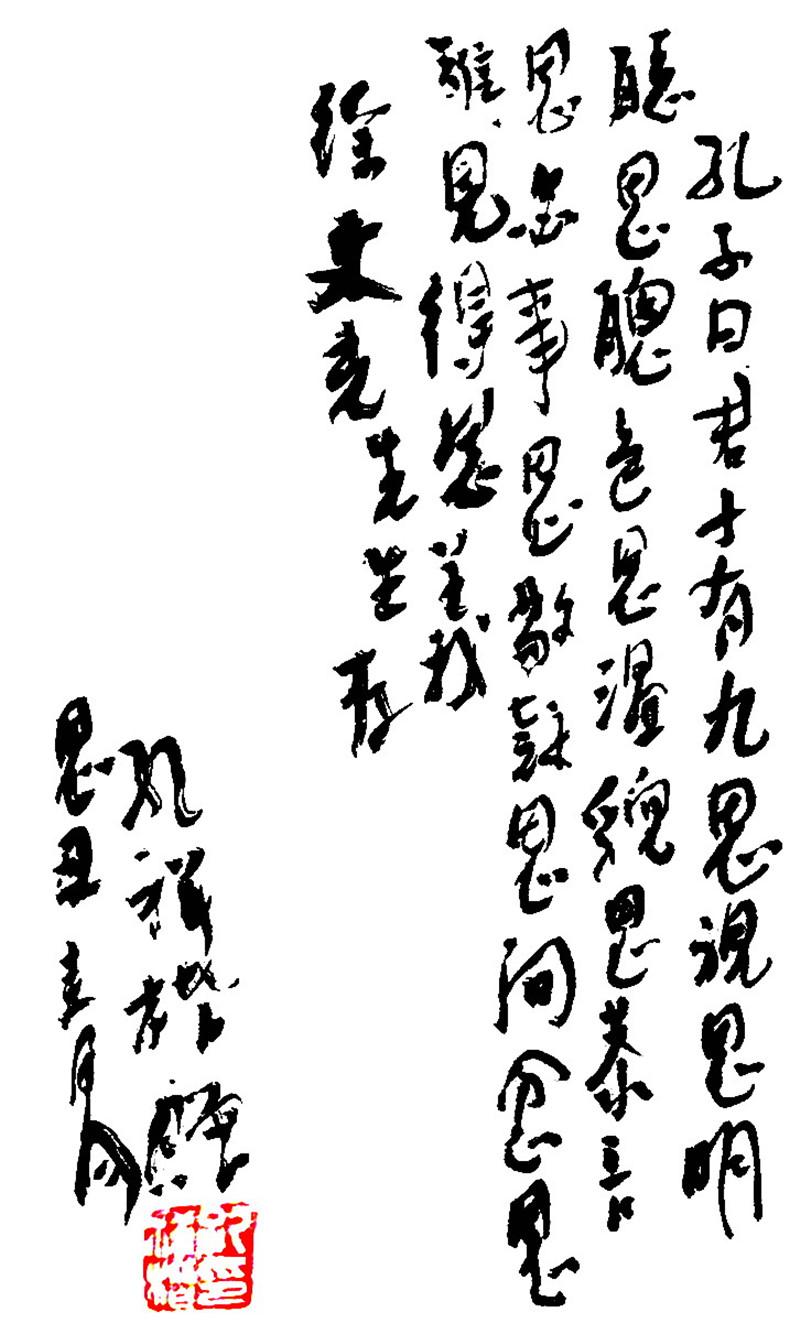 孔子曰君子有九思視思明
聽思聰色思温貌思恭言
思忠事思敬疑思問忿思
難見得思義
徐先生存
孔祥楷題
丑月
孔印祥楷